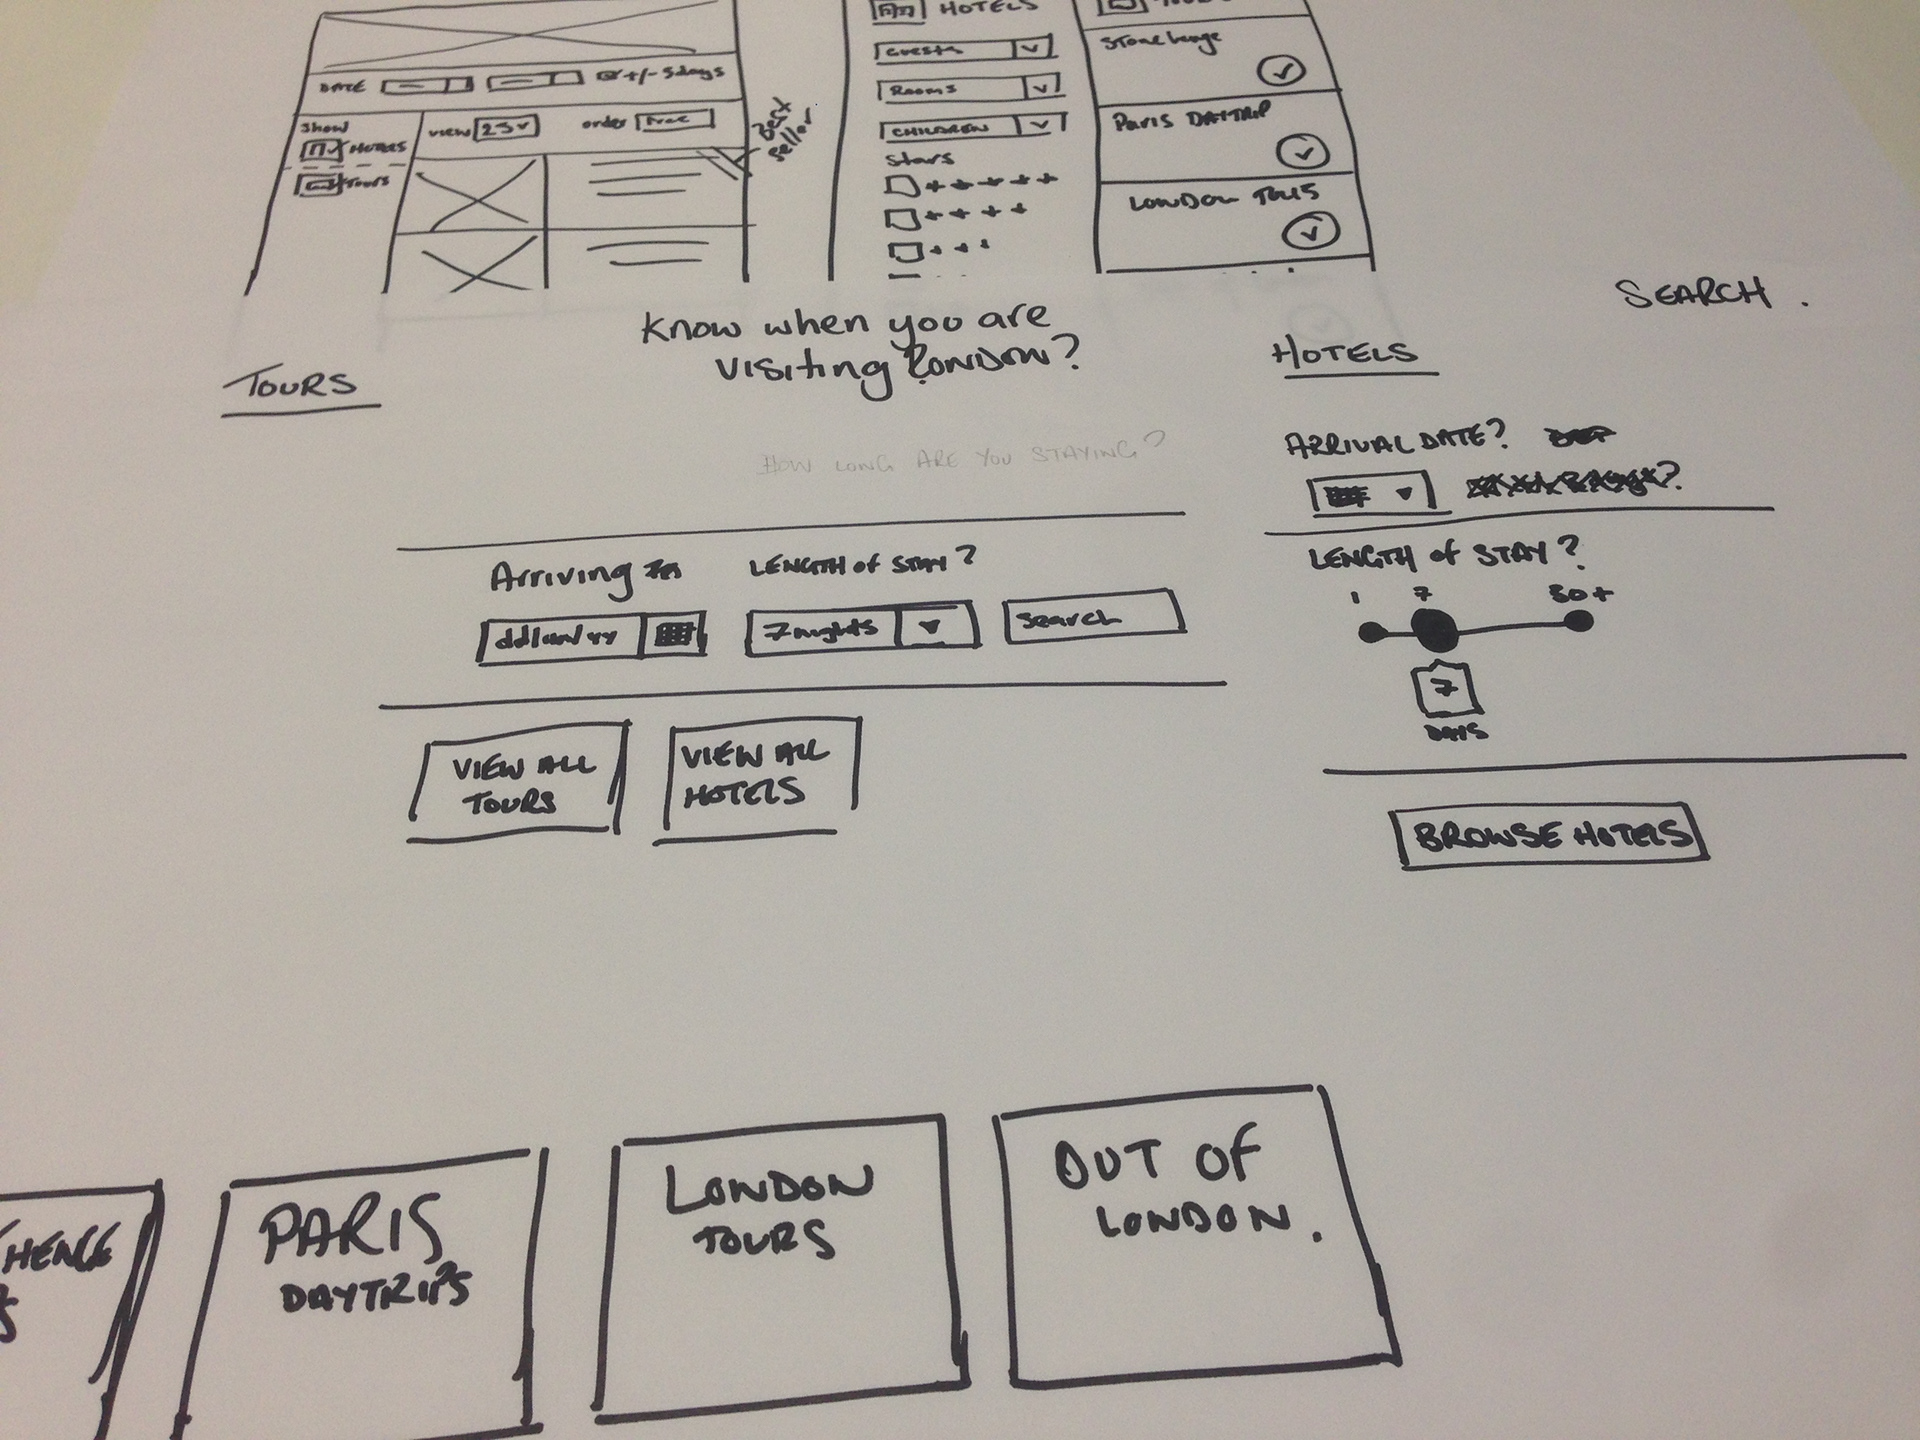 DATE +/- 5days
Show
HOTELS
TOURS
view 25
order Price
Best
seller
HOTELS
Guests
Rooms
CHILDREN
Stars
Stonehenge
Paris DAYTRIP
LONDON TOURS
Know when you are
visiting LONDON?
SEARCH.
TOURS
HOTELS
HOW LONG ARE YOU STAYING?
ARRIVAL DATE?
Arriving LENGTH of STAY?
dd/mm/yy 7 nights search
LENGTH of STAY?
1 7 30+
7
DAYS
VIEW ALL
TOURS
VIEW ALL
HOTELS
BROWSE HOTELS
HENGE
PARIS
DAYTRIPS
LONDON
TOURS
OUT OF
LONDON.